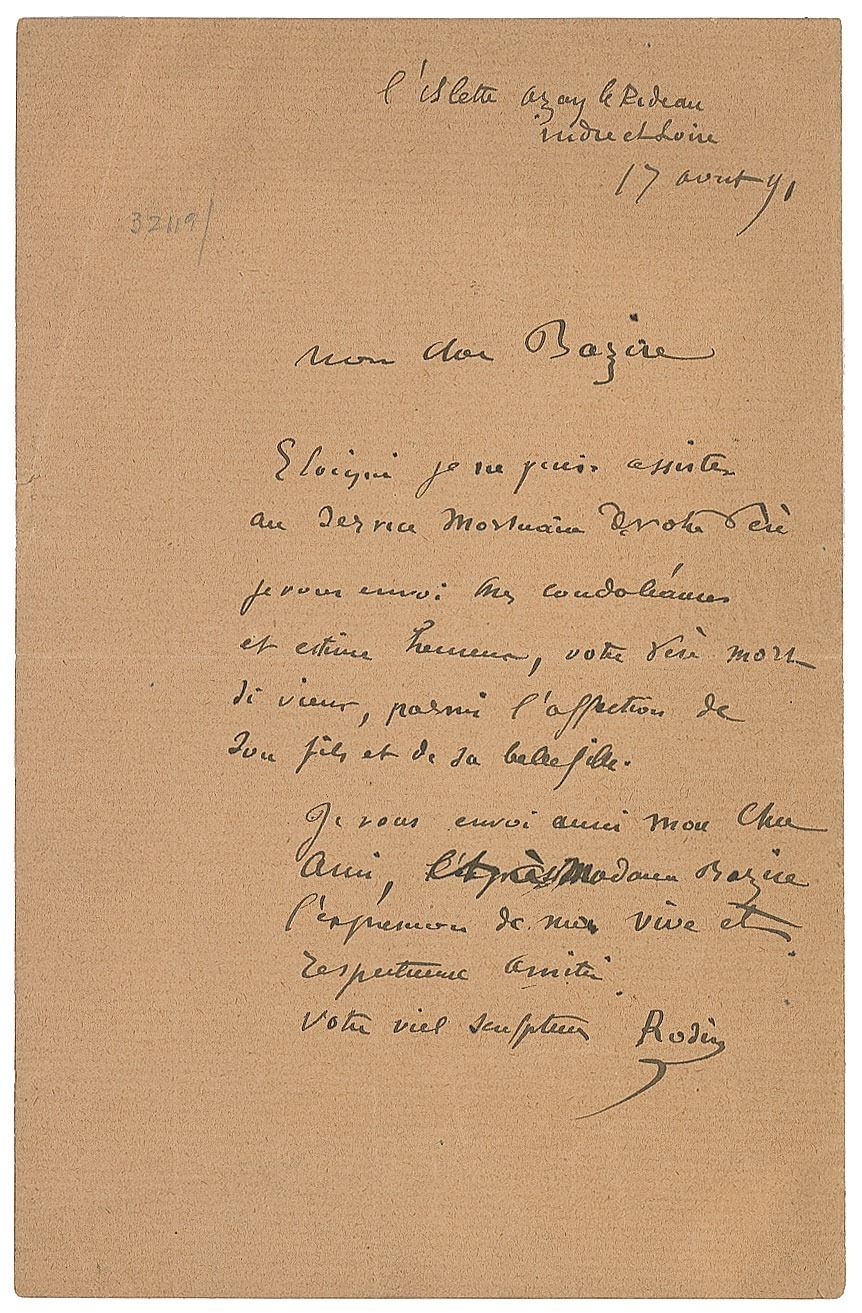 l'islette azay le Rideau
indre et Loire
17 aout 91
32119/
mon cher Bazire
Eloigné je ne puis assister
au service Mortuaire de votre Père
je vous envoi mes condoléances
et estime heureux, votre Père mort
si vieux, parmi l'affection de
son fils et de sa belle fille.
Je vous envoi aussi mon Cher
Ami, Madame Bazire
l'expression de ma vive et
respectueuse amitié.
Votre viel sculpteur Rodin